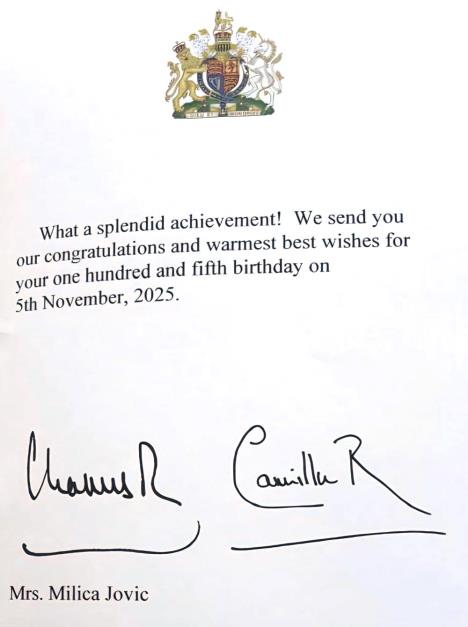 What a splendid achievement! We send you
our congratulations and warmest best wishes for
your one hundred and fifth birthday on
5th November, 2025.
Charles R
Camilla R
Mrs. Milica Jovic